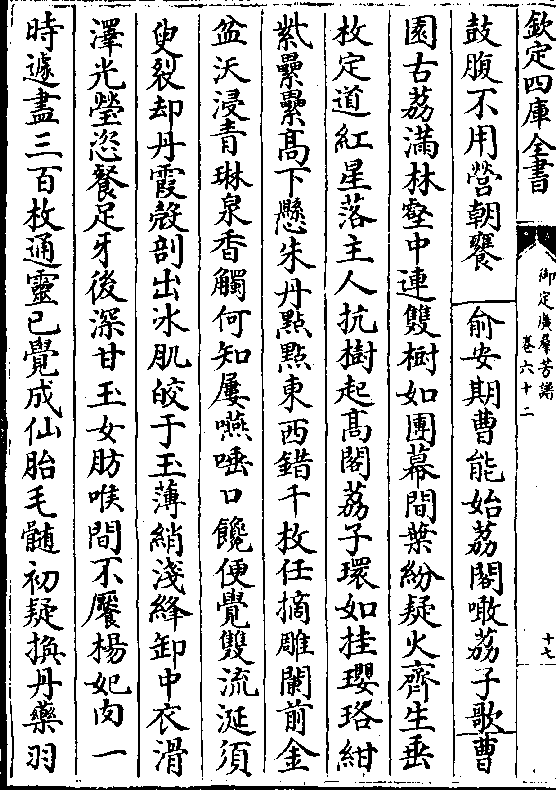 欽定四庫全書
御定廣羣芳譜
卷六十二
十七
鼓腹不用營朝饔　俞安期曹能始荔閣噉荔子歌曹
園古荔滿林壑中連雙樹如團幕間葉紛疑火齊生垂
枚定道紅星落主人抗樹起髙閣荔子環如挂瓔珞紺
紫纍纍髙下懸朱丹點點東西錯千枚任摘雕闌前金
盆沃浸青琳泉香觸何知屢嚥唾口饞便覺雙流涎須
臾裂却丹霞殻剖出冰肌皎于玉薄綃淺絳卸中衣滑
澤光瑩恣餐足牙後深甘玉女肪喉間不饜楊妃肉一
時遽盡三百枚通靈已覺成仙胎毛髄初疑換丹藥羽